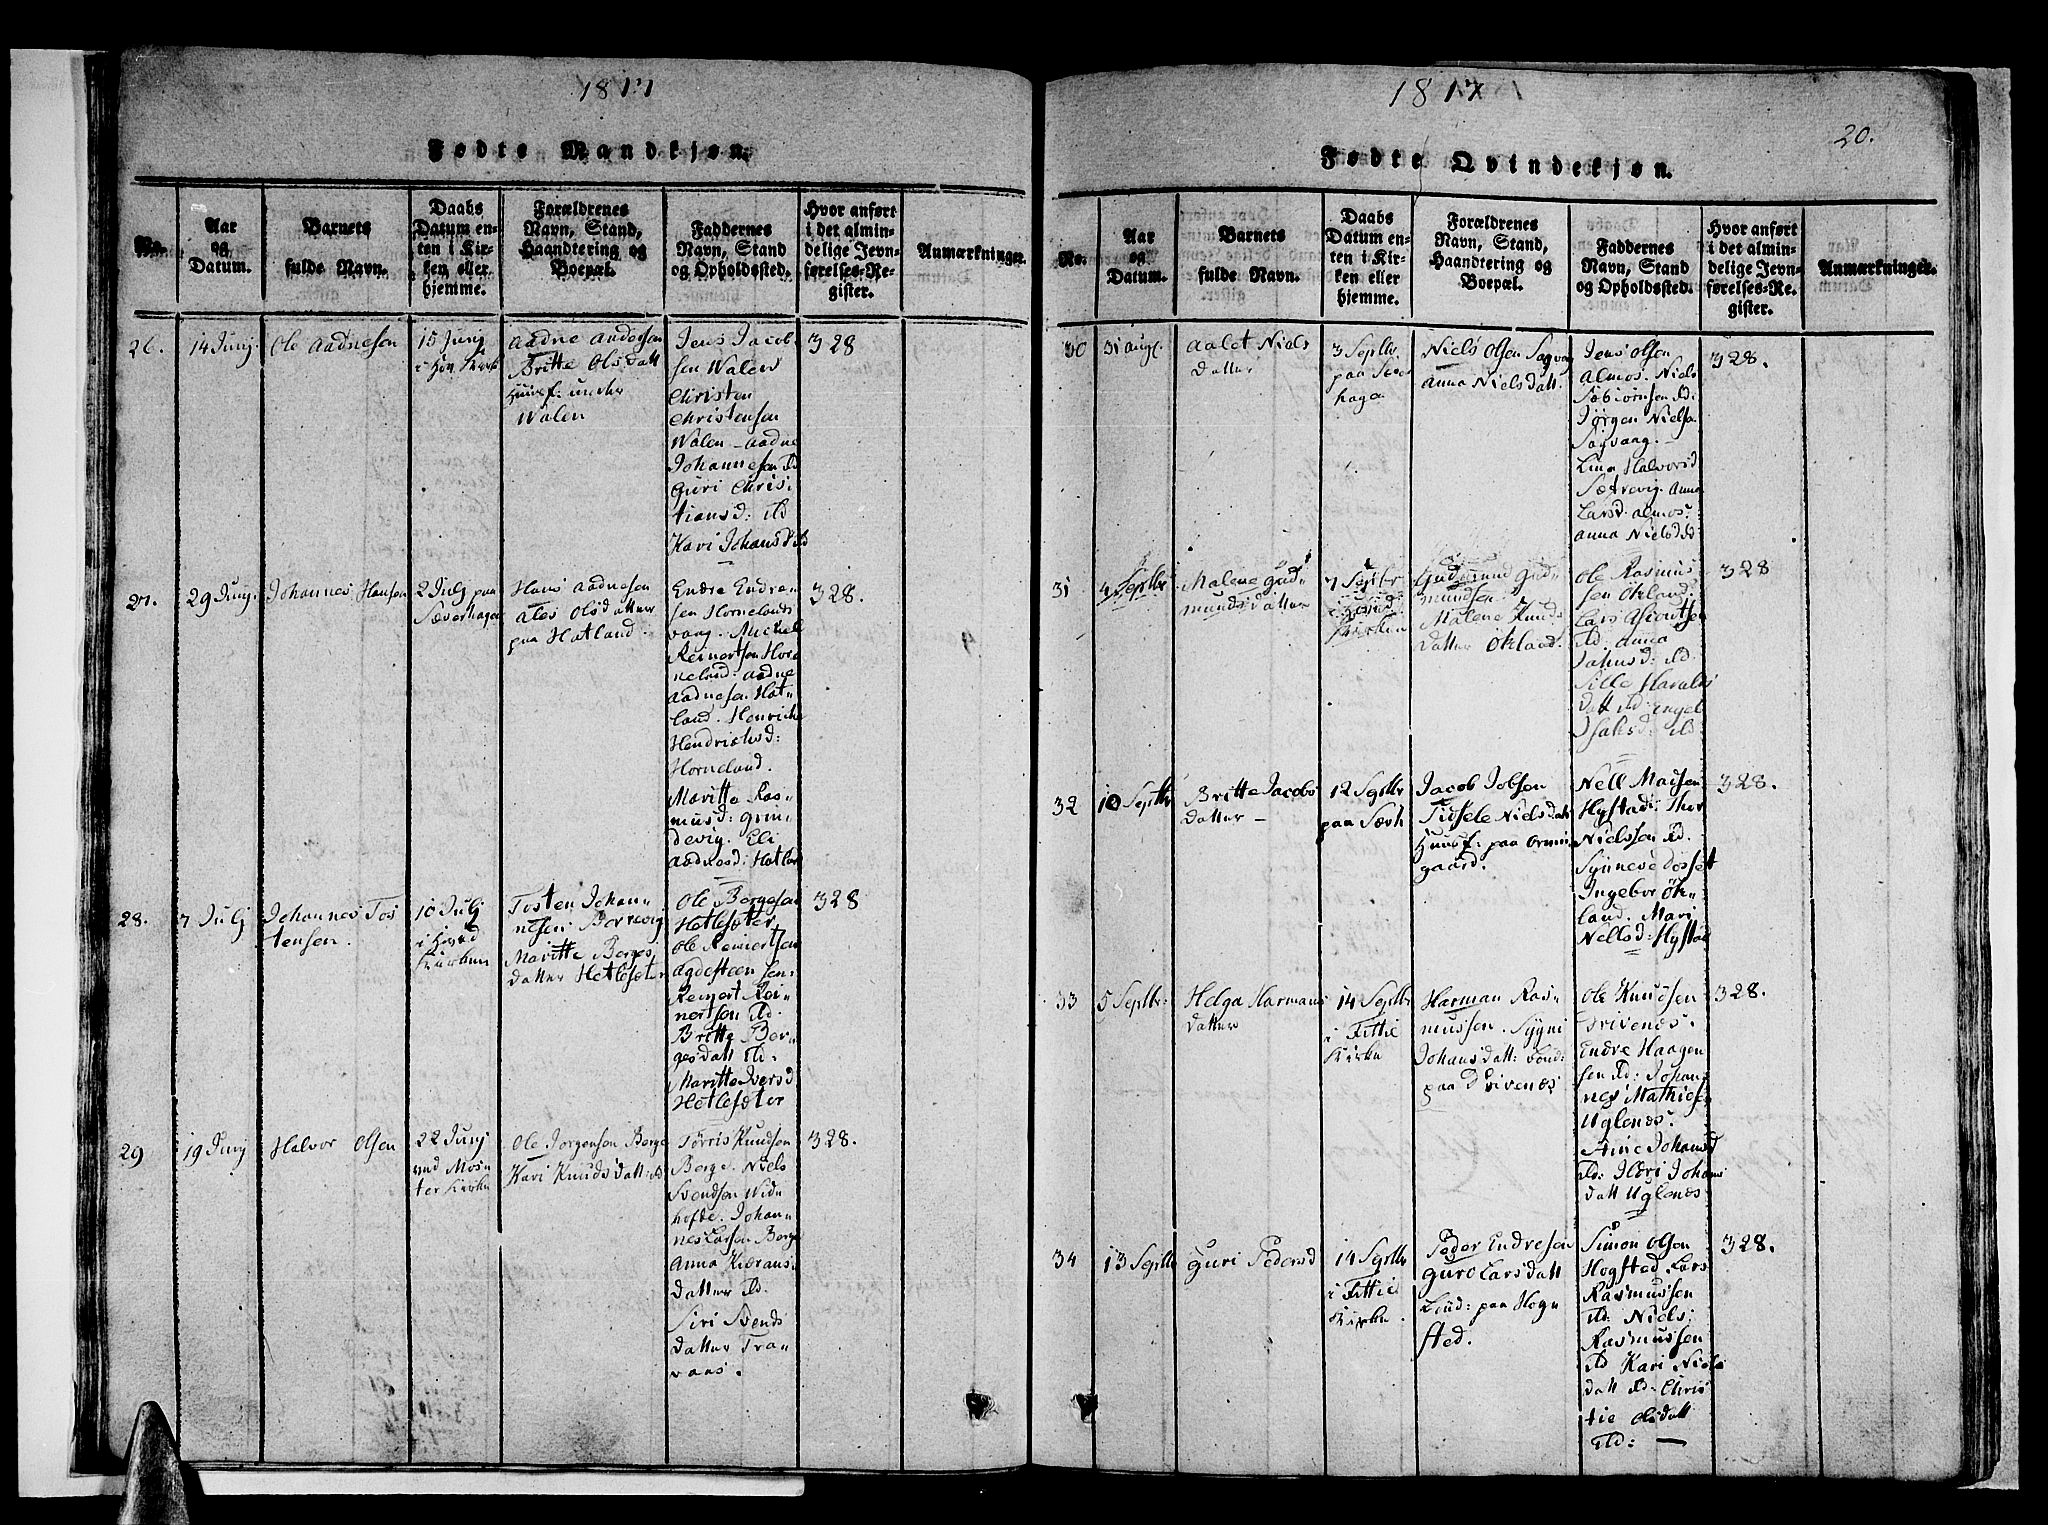 1817
Fødte Mandkjøn.
No.
Aar
og
Datum.
Barnets
fulde Navn.
Daabs
Datum en-
ten i Kir-
ken eller
hjemme.
Forældrenes
Navn, Stand,
Haandtering og
Boepæl.
Faddernes
Navn, Stand
og Opholdssted.
Hvor anført
i det almin-
delige Jevn-
førelses-Re-
gister.
Anmærkninger.
26.
14 Junj.
Ole Aadnesen
15 Junj
Aadne Andersen
Britte Olsdatt
Huusf: under
Walen
Jens Jacob
sen Walen
Christen
Christensen
Walen - Aadne
Johannesen Ibd
Guri Chris:
tiansd: Ibd
Kari Johansd Ibd
328
27.
29 Junj.
Johannes Hansen
2 Julj paa
Sæverhagen
Hans Aadnesen
Ales Olsdatter
paa Hatland.
Endre Endre=
sen Hornelands
vaag. Michel
Reinertsen Hor
neland: Aadne
Aadnesen Hat=
land. Henrich
Hendrichsd:
Horneland.
Maritte Ras=
musd: Grin
devig. Eli
Aadnesd: Hatland
328.
28.
7 Julj
Johannes Tos
tensen.
10 Julj
i
Kirken
Tosten Johan=
nesen Borrevig
Maritte Borges
datter Hetlesæter
Ole Borgesen
Hetlesæter
Ole Reinertsen
Agdesteen
Reinert Rei=
nertsen Ibd.
Britte Bor=
gesdatt Ibd:
Maritte Iversd
Hetlesæter
328
29
19 Junj
Halvor Olsen
22 Junj
ved Mos=
ter Kirke
Ole Jorgensen Borge
Kari Knudsdatt: Ibd
Torris Knudsen
Borge. Niels
Svendsen Wid=
hofde. Johan=
nes Larsen Borge
Anna
datter Ibd.
Siri Svends
datter Tra=
vaas.
328.
1817
20.
Fødte Qvindekjøn.
No.
Aar
og
Datum.
Barnets
fulde Navn.
Daabs
Datum en-
ten i Kir-
ken eller
hjemme.
Forældrenes
Navn, Stand,
Haandtering og
Boepæl.
Faddernes
Navn, Stand
og Opholdssted.
Hvor anført
i det almin-
delige Jevn-
førelses-Re-
gister.
Anmærkninger.
30
31 Aug.
Aalet Niels
datter
3 Septbr
paa Sæv
hagen
Niels Olsen Sagvaag
Anna Nielsdatt.
Jens Olsen
Almos. Niels
Ibd:
Jørgen Nielsen
Sagvaag. -
Lina Halvorsd
Sætrevig. Anna
Larsd. Almos:
Anna Nielsd Ibd
328.
31
4 Septbr
Malene Gud=
mundsdatter
7 Septbr
i
Kirken
Gudmund Gud=
mundsen.
Malene Knuds
datter Økland.
Ole Rasmus
sen Økland.
Lars
Ibd. Anna
Johnsd: Ibd.
Sille Haralds
datt Ibd Engel
Isaksd: Ibd.
328
32
10 Septbr
Britte Jacobs
datter -
12 Septbr
paa Sævh
Jacob Jobsen
Sidsele Nielsdatt
Huusf: paa Ornin
gaard.
Nell Madsen
Hystad: Thor
Nielssen Ibd.
Synneve Dosset
Ingebor Øk=
land. Mari
Nellsd: Hystad
328.
33
5 Septbr:
Helga Harmans
datter
14 Septbr
i Fittie
Kirke
Harman Ras=
mussen. Sygni
Johansdatt: bond:
paa Drivenæs
Ole Knudsen
Drivenæs.
Endre Haagen
sen Ibd: Johan
nes Mathies
Uglenæs.
Ane Johansd
Ibd: Johans
datt Uglenæs
328.
34
13 Septbr
Guri Pedersd
14 Septbr
i Fittie
Kirke.
Peder Endresen
Guro Larsdatt
bond: paa Hog=
sted.
Simon Olsen
Hogsted. Lars
Rasmussen
Ibd: Niels
Rasmussen
Ibd Kari Niels
datt Ibd. Chris
tie Olsdatt
Ibd: -
328.